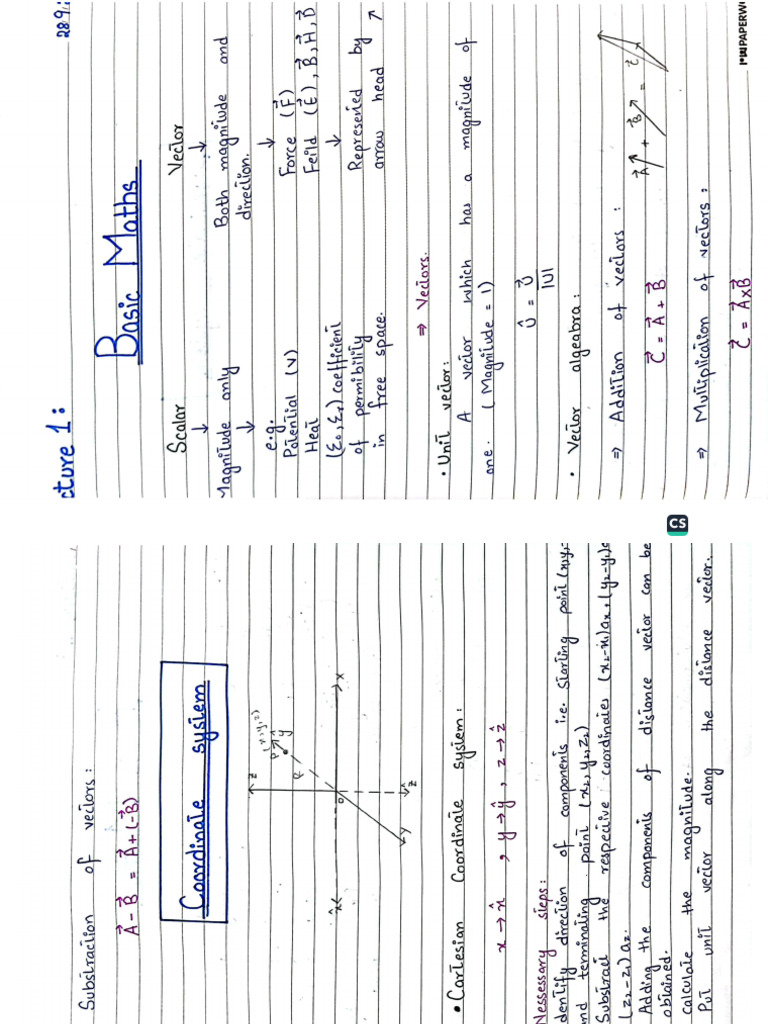 cture 1:
28.9.
Basic Maths
Scalar Vector
↓ ↓
Magnitude only Both magnitude and
↓ direction.
e.g. ↓
Potential (V) Force (F⃗)
Heat Feild (E⃗), B⃗, H⃗, D⃗
(ε₀, εr) coefficient ↓
of permibility Represented by
in free space. arrow head ↗
⇒ Vectors.
• Unit vector:
A vector which has a magnitude of
one. (Magnitude = 1)
Û = U⃗ / |U|
• Vector algeabra:
⇒ Addition of vectors:
A⃗ + B⃗ = C⃗
C⃗ = A⃗ + B⃗
⇒ Multiplication of vectors:
C⃗ = A⃗ x B⃗
PAPERW
CS
Substraction of vectors:
A⃗ - B⃗ = A⃗ + (-B⃗)
Coordinate system
z
P (x,y,z)
ŷ
R
x̂ O x
y
ẑ
• Cartesian Coordinate system:
x → x̂, y → ŷ, z → ẑ
Nessessary steps:
dentify direction of components i.e. starting point (x,y,
and terminating point (x₂, y₂, z₂)
Substract the respective coordinates (x₂-x₁)ax + (y₂-y₁)
(z₂-z₁)az.
Adding the components of distance vector can be
obtained.
calculate the magnitude.
Put unit vector along the distance vector.